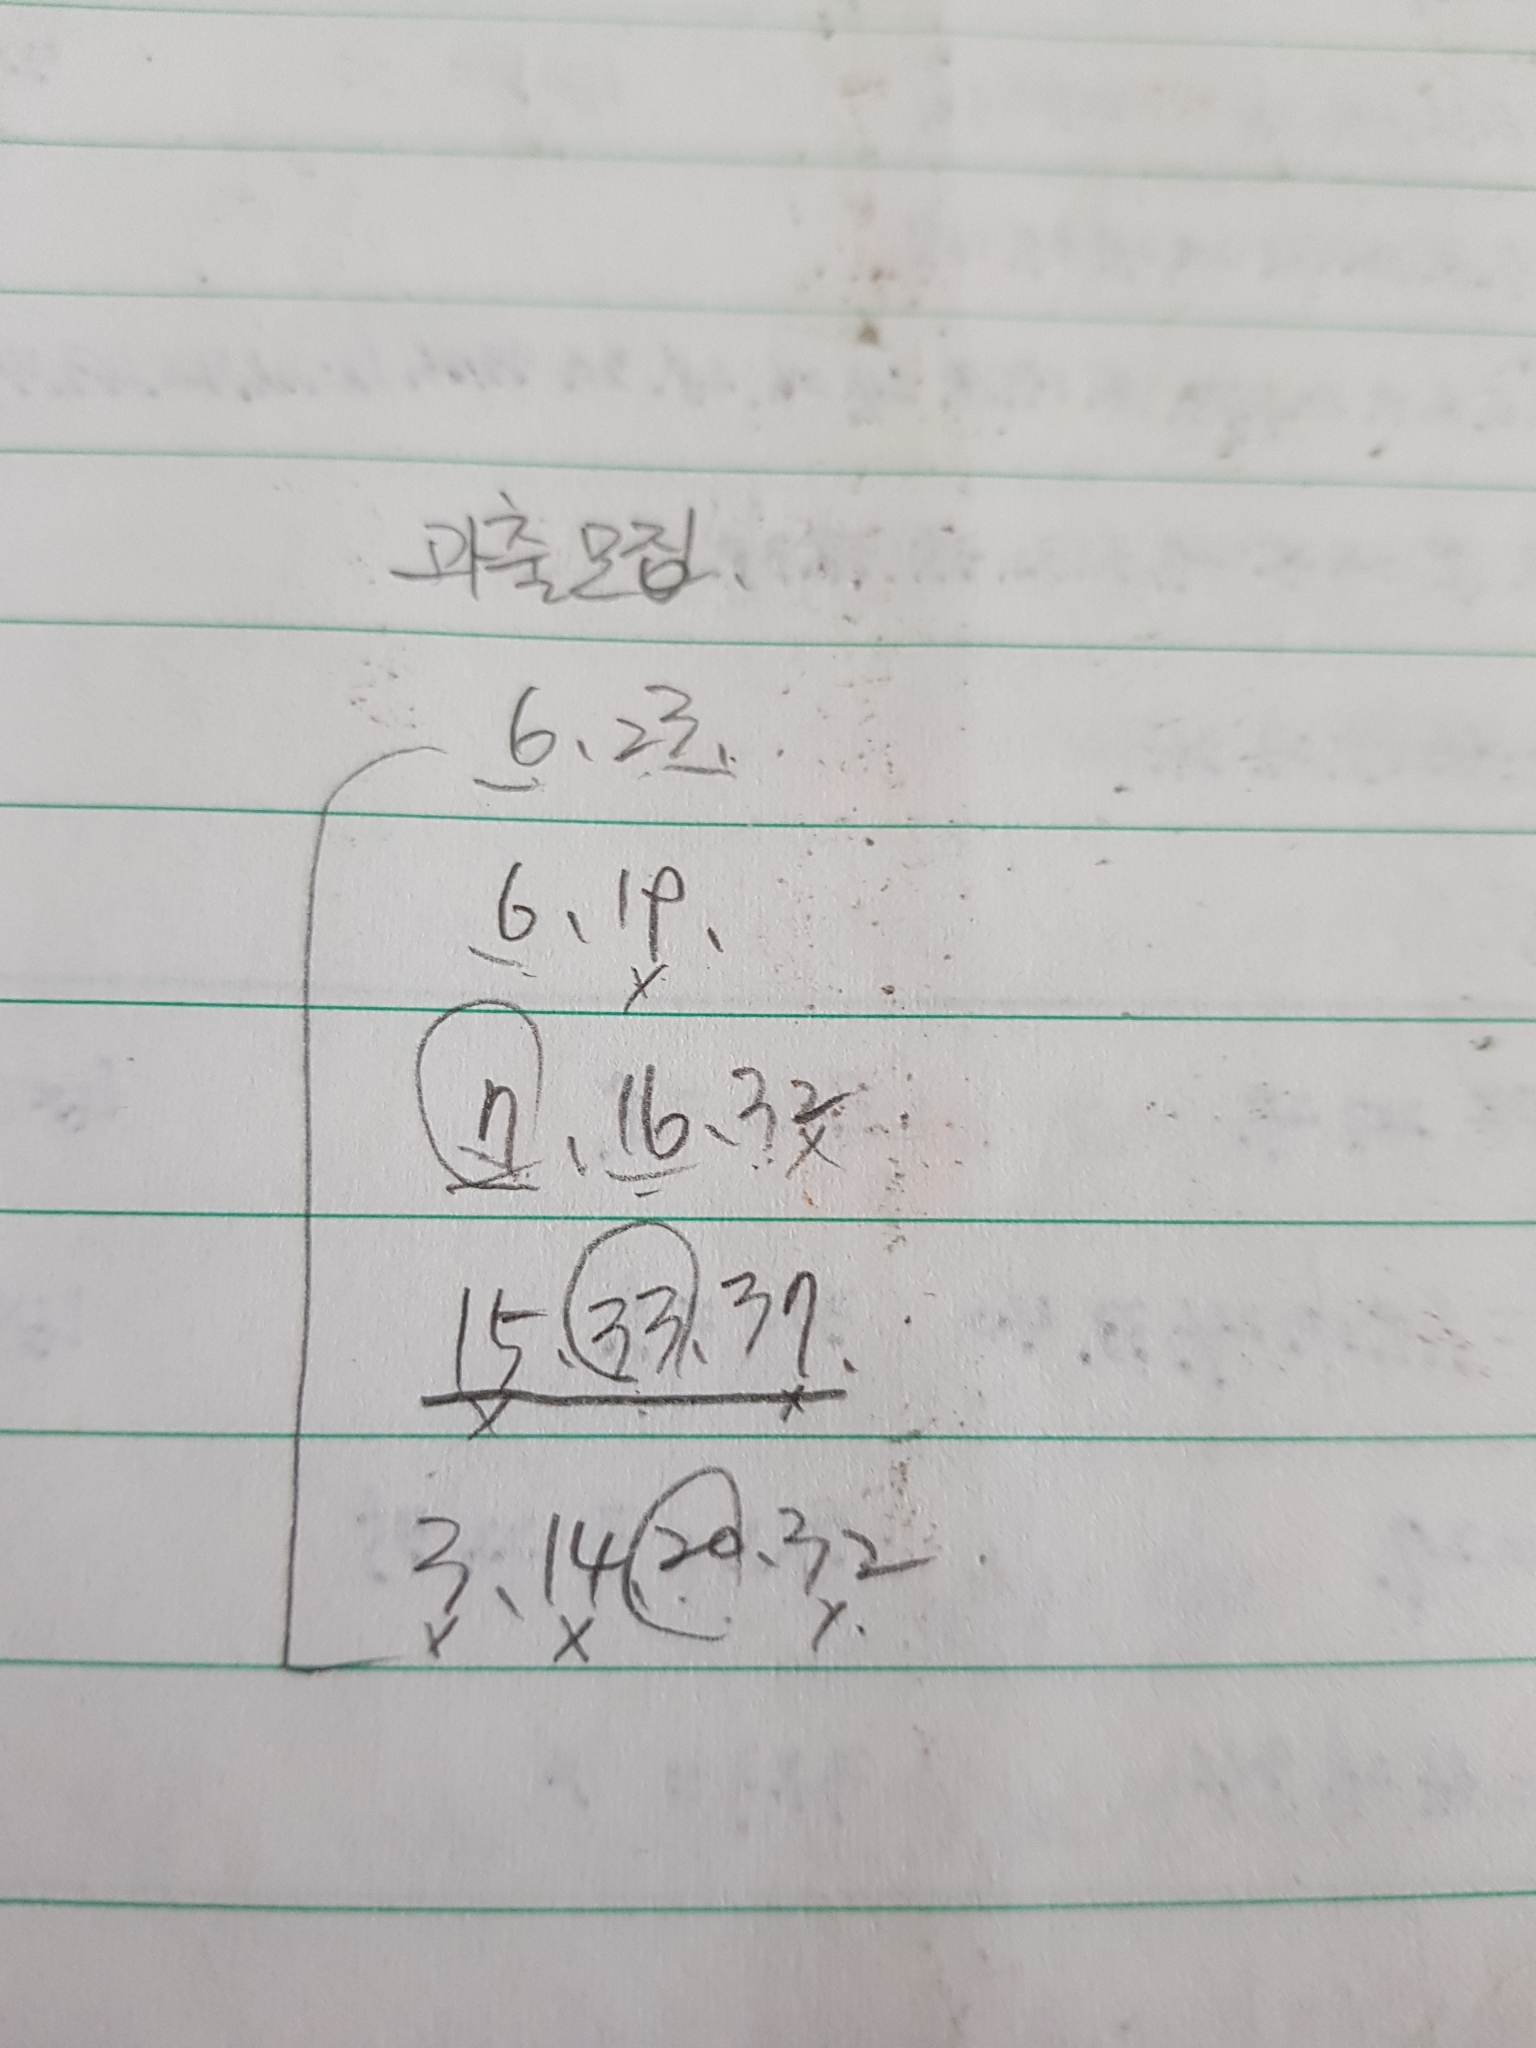 과출모집.
6. 23.
6. 19.
7. 16. 32
15. 33. 37.
3. 14. 20. 32